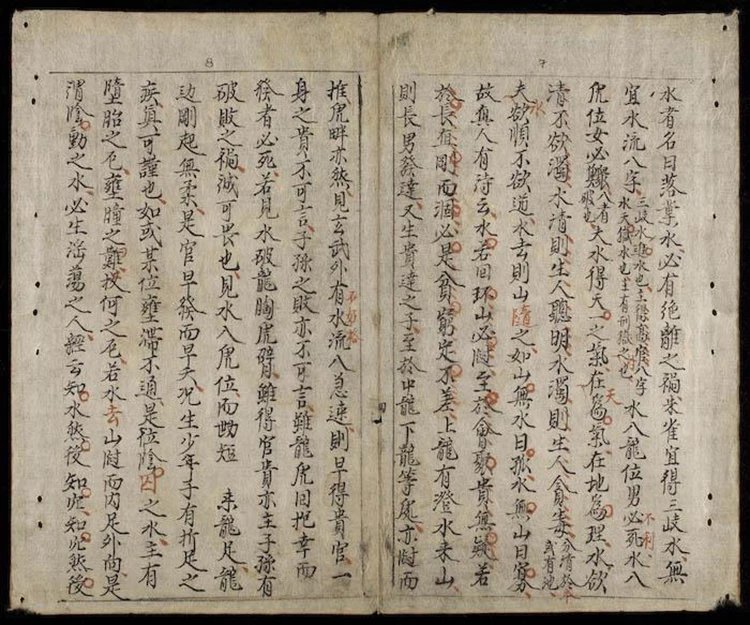 7
水者名曰落業水必有絶離之禍朱雀宜得三岐水無
宜水流八字三岐水進水也主得高官八字水天獄水也主有刑獄之也水入龍位男必死水入
不利
虎位女必難人有破也夫水得天一之氣在天為氣在地為理水欲
清不欲濁水清則生人聰明水濁則生人貪毒
夫水欲順不欲逆水去則山隨之如山無水曰孤水無山曰寡
故真人有詩云水若回环山必尉至於會聚貴無疑若
於長直剛而涸必是貧窮定不差上龍有澄水来山
則長男發達又生貴達之子至於中龍下龍等處亦尉而
8
推虎畔亦然見玄武外有水流入急速則早得貴官一
身之貴不可言子孫之敗亦不可言雖龍虎回抱幸而
發者必死若見水破龍胸虎臂雖得官貴亦主子孫有
破敗之禍誠可畏也見水入虎位而短来龍足龍
边剛起無柔是官早發而早夭况生少年子有折足之
疾真可謹也如或某位壅滯不通是位陰囚之水主有
墮胎之厄壅腫之難投何之厄若水去山尉而内足外尚是
渭陰動之水必生淫蕩之人經云知水然後知穴知穴然後